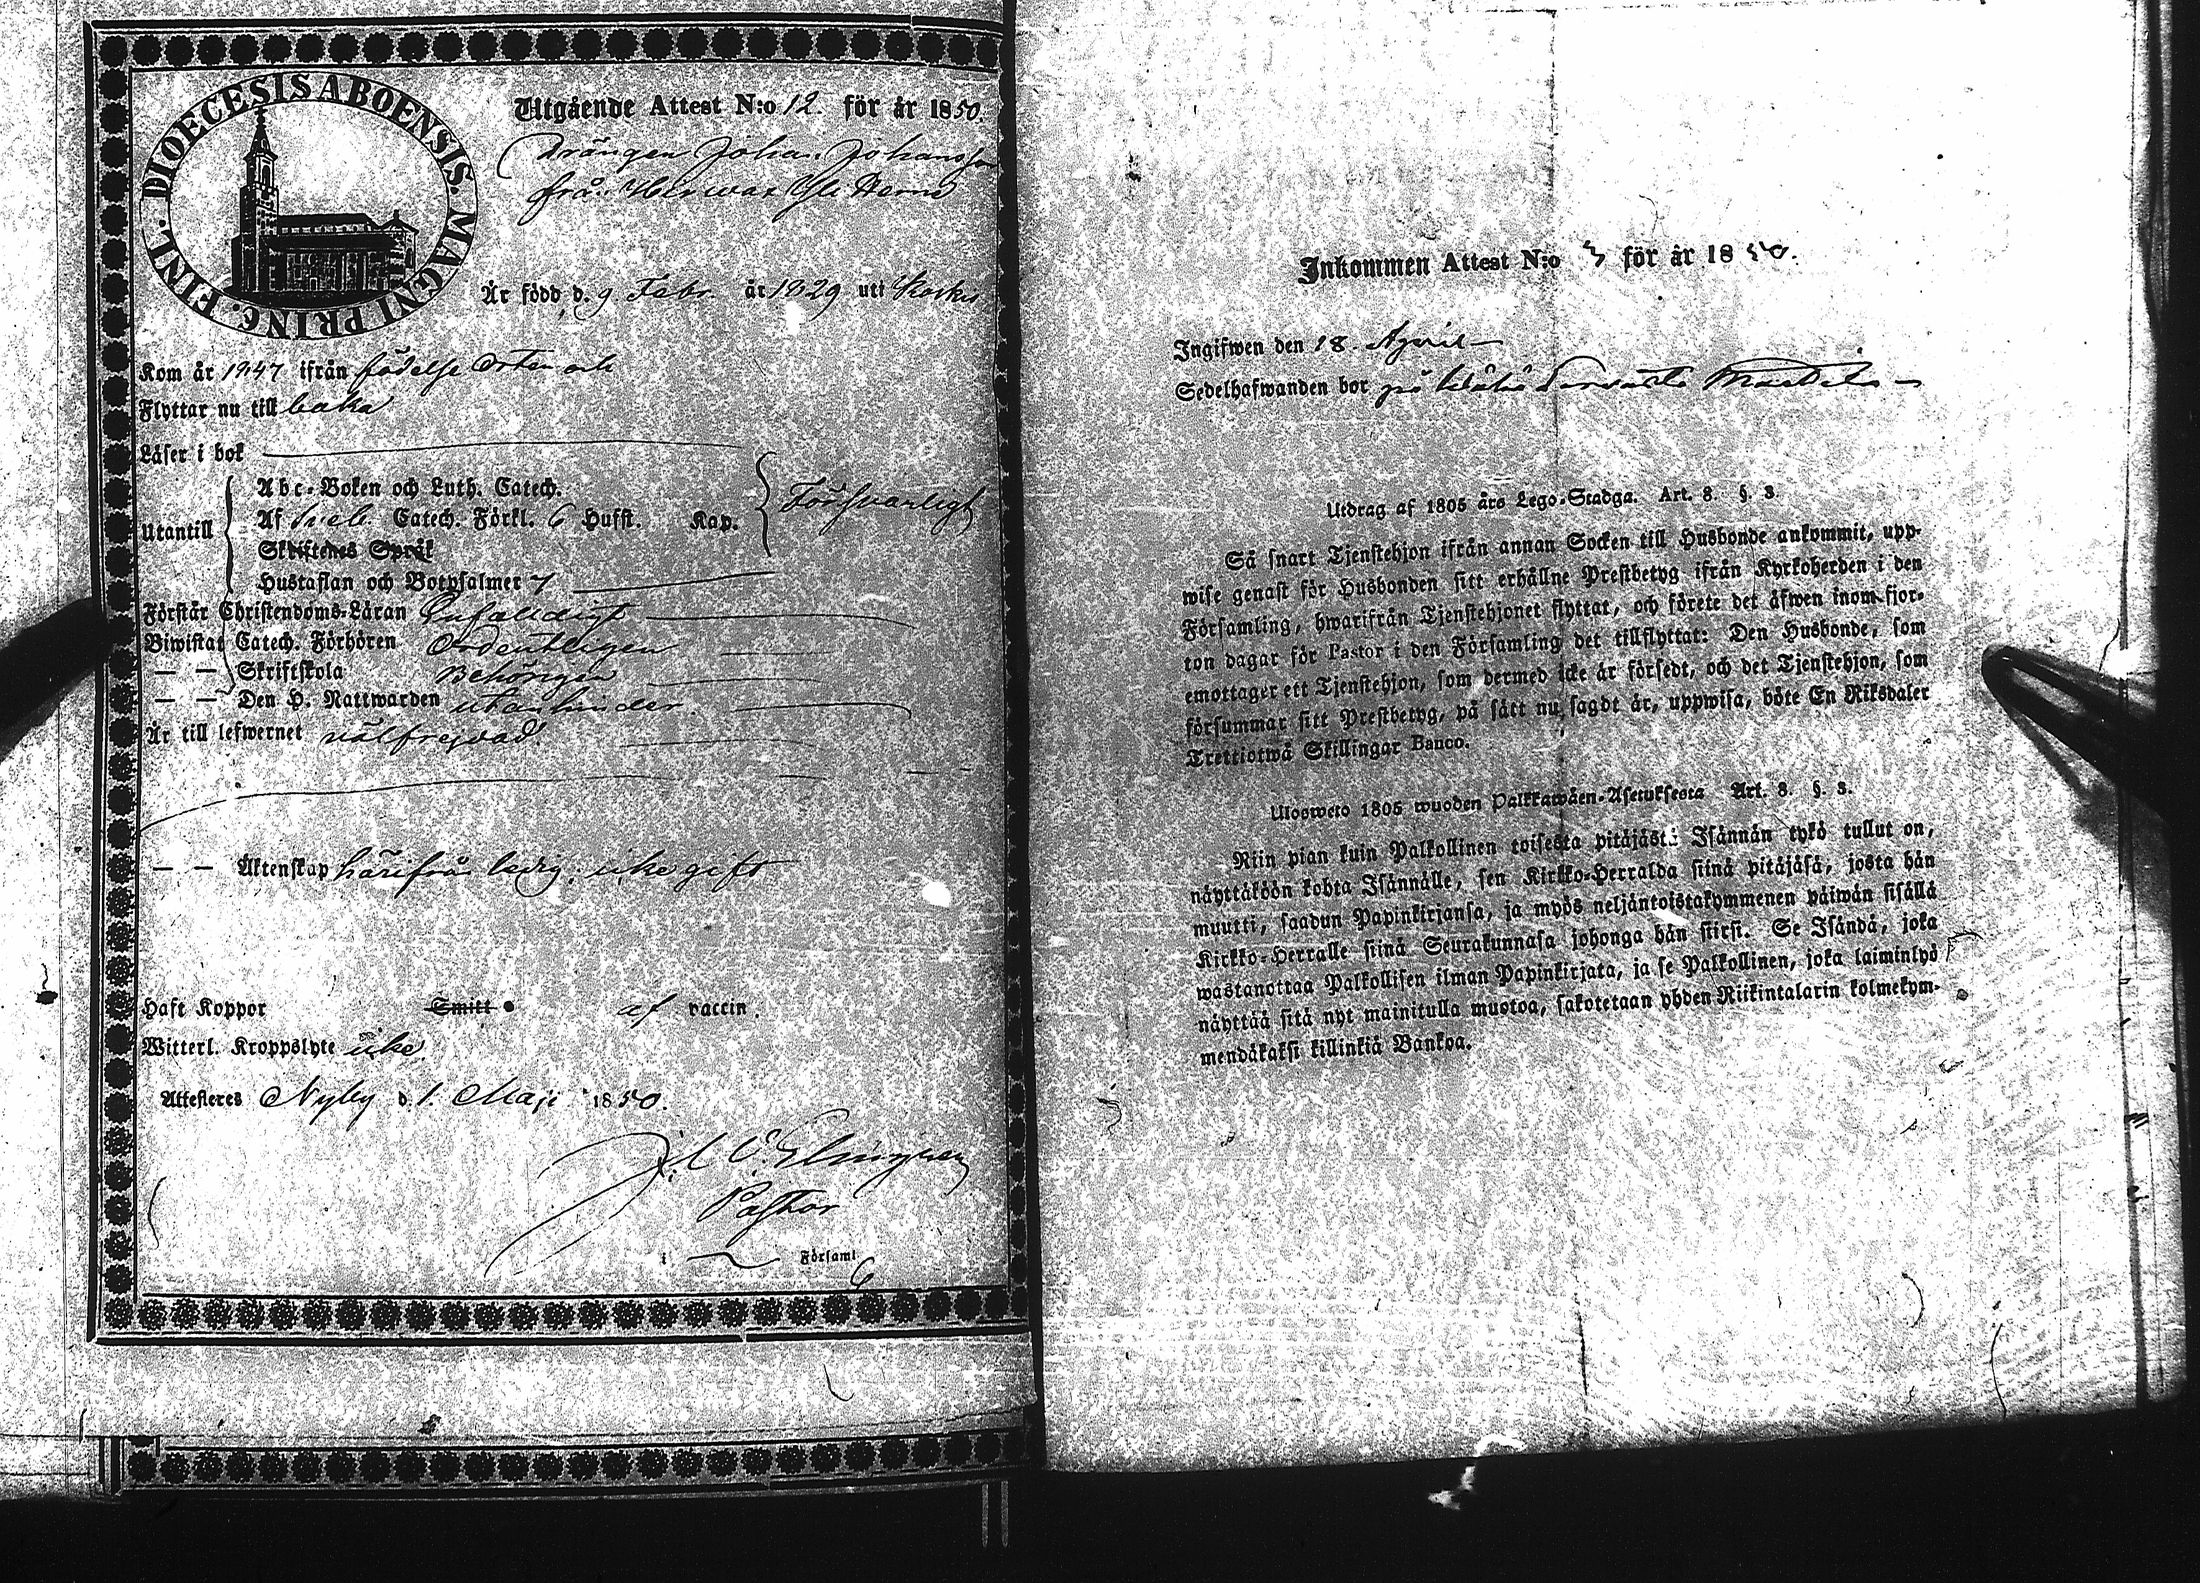 DIOECESIS ABOENSIS. MAGNI PRINC. FINL.
Utgående Attest N:o 12. för år 1850.
Drängen Johan Johansson
från
Är född d. 9 Febr. år 1829 uti Koskis
Kom år 1847 ifrån födelse orten och
Flyttar nu till baka
Läser i bok
Utantill
Abc-Boken och Luth. Catech.
Af Sveb. Catech. Förkl. 6 Hufst. Kap.
Försvarligt
Skriftenes Språk
Hustaflan och Botpsalmer 7
Förstår Christendoms-Läran Enfaldigt
Biwistat Catech. Förhören Ordentligen
— — Skriftskola Behörigen
— — Den H. Nattwarden utan hinder
Är till lefwernet välfrejdad.
— — Äktenskap härifrån ledig, icke gift
Haft Koppor Smitt af vaccin.
Witterl. Kroppslyte icke
Attesteres Nyby d. 1. Maji 1850.
Pastor
i Församl.
Inkommen Attest N:o 3 för år 1850.
Ingifwen den 18. April
Sedelhafwanden bor på
Utdrag af 1805 års Lego-Stadga. Art. 8. §. 3.
Så snart Tjenstehjon ifrån annan Socken till Husbonde ankommit, upp-
wise genast för Husbonden sitt erhållne Prestbetyg ifrån Kyrkoherden i den
Församling, hwarifrån Tjenstehjonet flyttat, och förete det äfwen inom fjor-
ton dagar för Pastor i den Församling det tillflyttat: Den Husbonde, som
emottager ett Tjenstehjon, som dermed icke är försedt, och det Tjenstehjon, som
försummar sitt Prestbetyg, på sätt nu sagdt är, uppwisa, böte En Riksdaler
Trettiotwå Skillingar Banco.
Ulosweto 1805 wuoden Palkkawäen-Asetuksesta Art. 8. §. 3.
Niin pian kuin Palkollinen toisesta pitäjästä Isännän tykö tullut on,
näyttäköön kohta Isännälle, sen Kirkko-Herralda siinä pitäjäsä, josta hän
muutti, saadun Papinkirjansa, ja myös neljäntoistakymmenen päiwän sisällä
Kirkko-Herralle siinä Seurakunnasa johonga hän siirsi. Se Isändä, joka
wastanottaa Palkollisen ilman Papinkirjata, ja se Palkollinen, joka laiminlyö
näyttää sitä nyt mainitulla muotoa, sakotetaan yhden Riikintalarin kolmekym-
mendäkaksi killinkiä Bankoa.